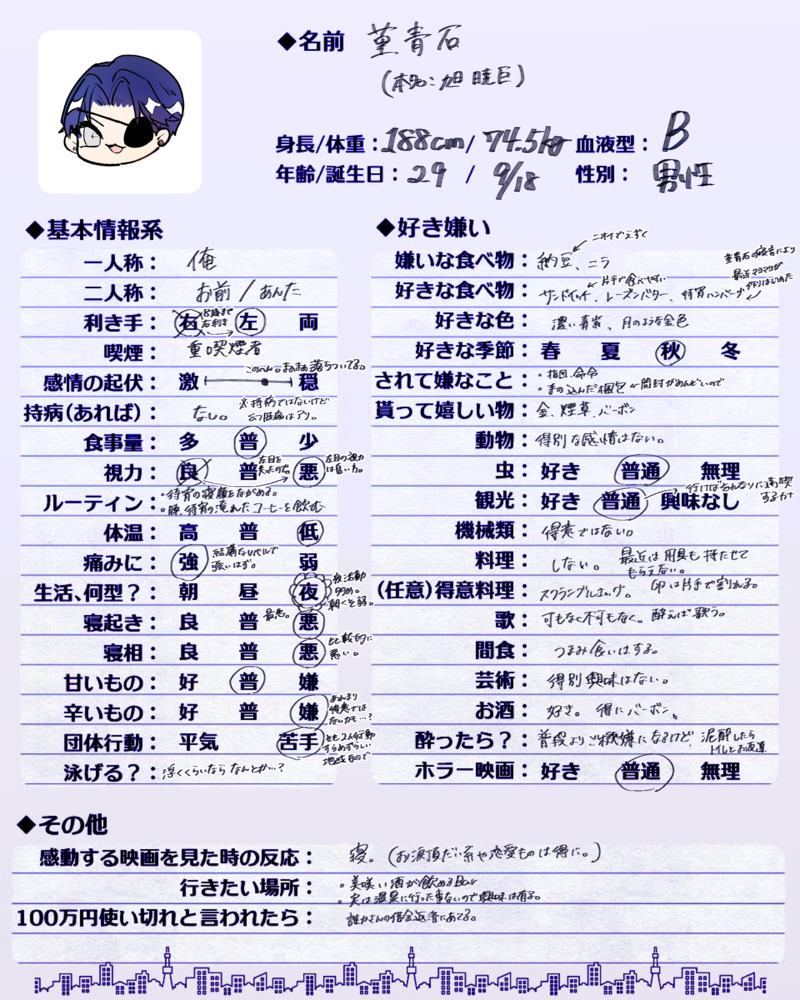 ◆名前 菫青石
(本名:旭 暁臣)
身長/体重:188cm/74.5kg 血液型:B
年齢/誕生日:29/9/18 性別:男性
◆基本情報系
一人称:俺
二人称:お前/あんた
利き手:右 左 両
18歳まで右利き
喫煙:重喫煙者
感情の起伏:激 穏
このへん。まぁまぁ落ちついてる。
持病(あれば):なし。
※持病ではないけど
腰痛はアリ。
食事量:多 普 少
視力:良 普 悪
左目を失ったので右
左目の視力は良い方。
ルーティン:・待宵の寝顔をながめる。
・朝、待宵の淹れたコーヒーを飲む
体温:高 普 低
痛みに:強 弱
結構なレベルで強いはず。
生活、何型?:朝 昼 夜
夜活動
多め。
朝くそ弱。
寝起き:良 普 悪
最悪。
寝相:良 普 悪
比較的に悪い。
甘いもの:好 普 嫌
辛いもの:好 普 嫌
あんまり得意ではないかも…?
団体行動:平気 苦手
2人行動すらめずらしい地域なので
泳げる?:浮くくらいならなんとか…?
◆好き嫌い
嫌いな食べ物:納豆、ニラ
ニオイでえずく
好きな食べ物:サンドイッチ、レーズンバター、待宵ハンバーグ
片手で食べやすい
菫青石の発言により
最近マヨマヨが
作りはじめた
好きな色:濃い青紫、月のような金色
好きな季節:春 夏 秋 冬
されて嫌なこと:・指図、命令
・手の込んだ梱包 ←開封がめんどいので
貰って嬉しい物:金、煙草、バーボン
動物:特別な感情はない。
虫:好き 普通 無理
観光:好き 普通 興味なし
行けばそれなりに満喫するカナ
機械類:得意ではない。
料理:しない。最近は用具も持たせて
もらえない。
(任意)得意料理:スクランブルエッグ。卵は片手で割れる。
歌:可もなく不可もなく。酔えば歌う。
間食:つまみ食いはする。
芸術:特別興味はない。
お酒:好き。特にバーボン。
酔ったら?:普段よりご機嫌になるけど、泥酔したら
トイレとお友達
ホラー映画:好き 普通 無理
◆その他
感動する映画を見た時の反応:寝。(お涙頂だい系や恋愛ものは特に。)
行きたい場所:・美味い酒が飲めるBar
・実は温泉に行った事ないので興味は有る。
100万円使い切れと言われたら:誰かさんの借金返済にあてる。